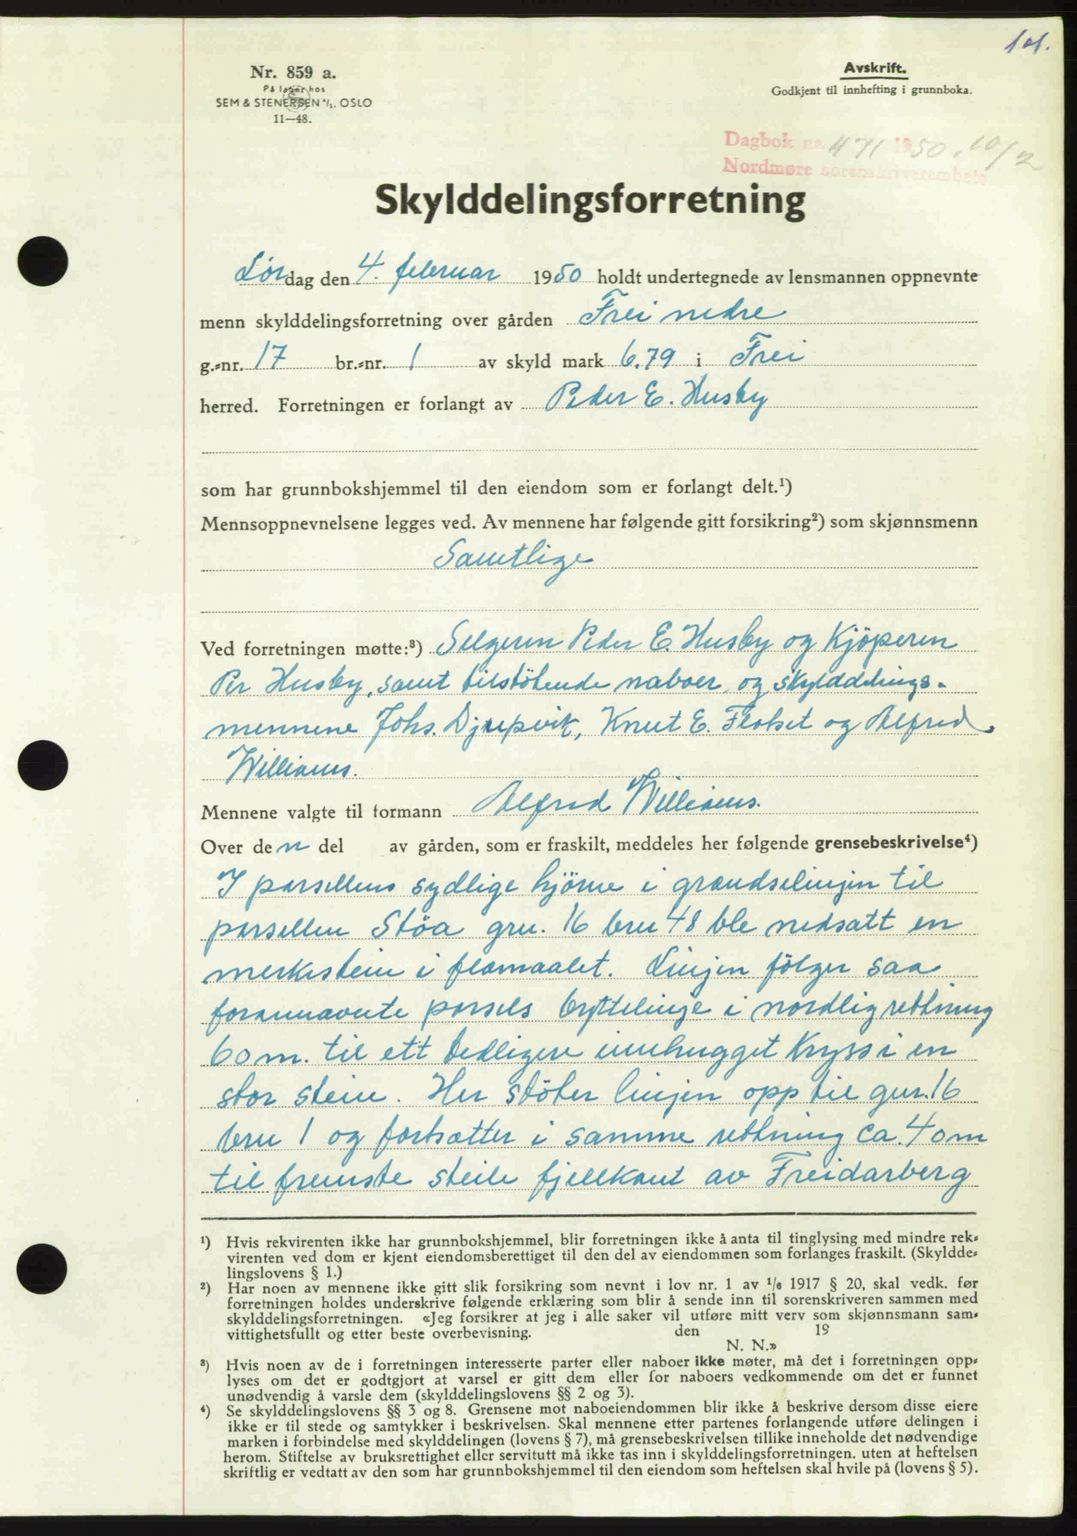 101.
Nr. 859 a.
På lager hos
SEM & STENERSEN A/S. OSLO
11—48.
Avskrift.
Godkjent til innhefting i grunnboka.
Dagbok nr. 471 1950. 10/2
Nordmøre sorenskriverembete
Skylddelingsforretning
Lørdag den 4. februar 1950 holdt undertegnede av lensmannen oppnevnte
menn skylddelingsforretning over gården Frei nedre
g.-nr. 17 br.-nr. 1 av skyld mark 6.79 i Frei
herred. Forretningen er forlangt av Peder E. Husby
som har grunnbokshjemmel til den eiendom som er forlangt delt.¹)
Mennsoppnevnelsene legges ved. Av mennene har følgende gitt forsikring²) som skjønnsmenn
Samtlige
Ved forretningen møtte:³) Selgeren Peder E. Husby og Kjöperen
Per Husby, samt tilstötende naboer og skylddelings-
mennene Johs. Djupvik, Knut E. Flatset og Alfred
Williams.
Mennene valgte til formann Alfred Williams.
Over den del av gården, som er fraskilt, meddeles her følgende grensebeskrivelse⁴)
I parsellens sydlige hjörne i grendselinjen til
parsellen Stöa gnr. 16 bnr 48 ble nedsatt en
merkestein i flomaalet. Linjen fölger saa
forannævnte parsels byttelinje i nordlig rettning
60 m. til ett tedligere innhugget Kryss i en
stor stein. Her stöter linjen opp til gnr. 16
bnr 1 og fortsætter i samme rettning ca. 40 m
til fremste steile fjellkant av Freidarberg
¹) Hvis rekvirenten ikke har grunnbokshjemmel, blir forretningen ikke å anta til tinglysing med mindre rek-
virenten ved dom er kjent eiendomsberettiget til den del av eiendommen som forlanges fraskilt. (Skyldde-
lingslovens § 1.)
²) Har noen av mennene ikke gitt slik forsikring som nevnt i lov nr. 1 av ¹/₆ 1917 § 20, skal vedk. før
forretningen holdes underskrive følgende erklæring som blir å sende inn til sorenskriveren sammen med
skylddelingsforretningen. «Jeg forsikrer at jeg i alle saker vil utføre mitt verv som skjønnsmann sam-
vittighetsfullt og etter beste overbevisning. den 19
N. N.»
³) Hvis noen av de i forretningen interesserte parter eller naboer ikke møter, må det i forretningen opp-
lyses om det er godtgjort at varsel er gitt dem eller for naboers vedkommende om det er funnet
unødvendig å varsle dem (skylddelingslovens §§ 2 og 3).
⁴) Se skylddelingslovens §§ 3 og 8. Grensene mot naboeiendommen blir ikke å beskrive dersom disse eiere
ikke er til stede og samtykker i beskrivelsen. Skal mennene etter partenes forlangende utføre delingen i
marken i forbindelse med skylddelingen (lovens § 7), må grensebeskrivelsen tillike inneholde det nødvendige
herom. Stiftelse av bruksrettighet eller servitutt må ikke tas inn i skylddelingsforretningen, uten at heftelsen
skriftlig er vedtatt av den som har grunnbokshjemmel til den eiendom som heftelsen skal hvile på (lovens § 5).